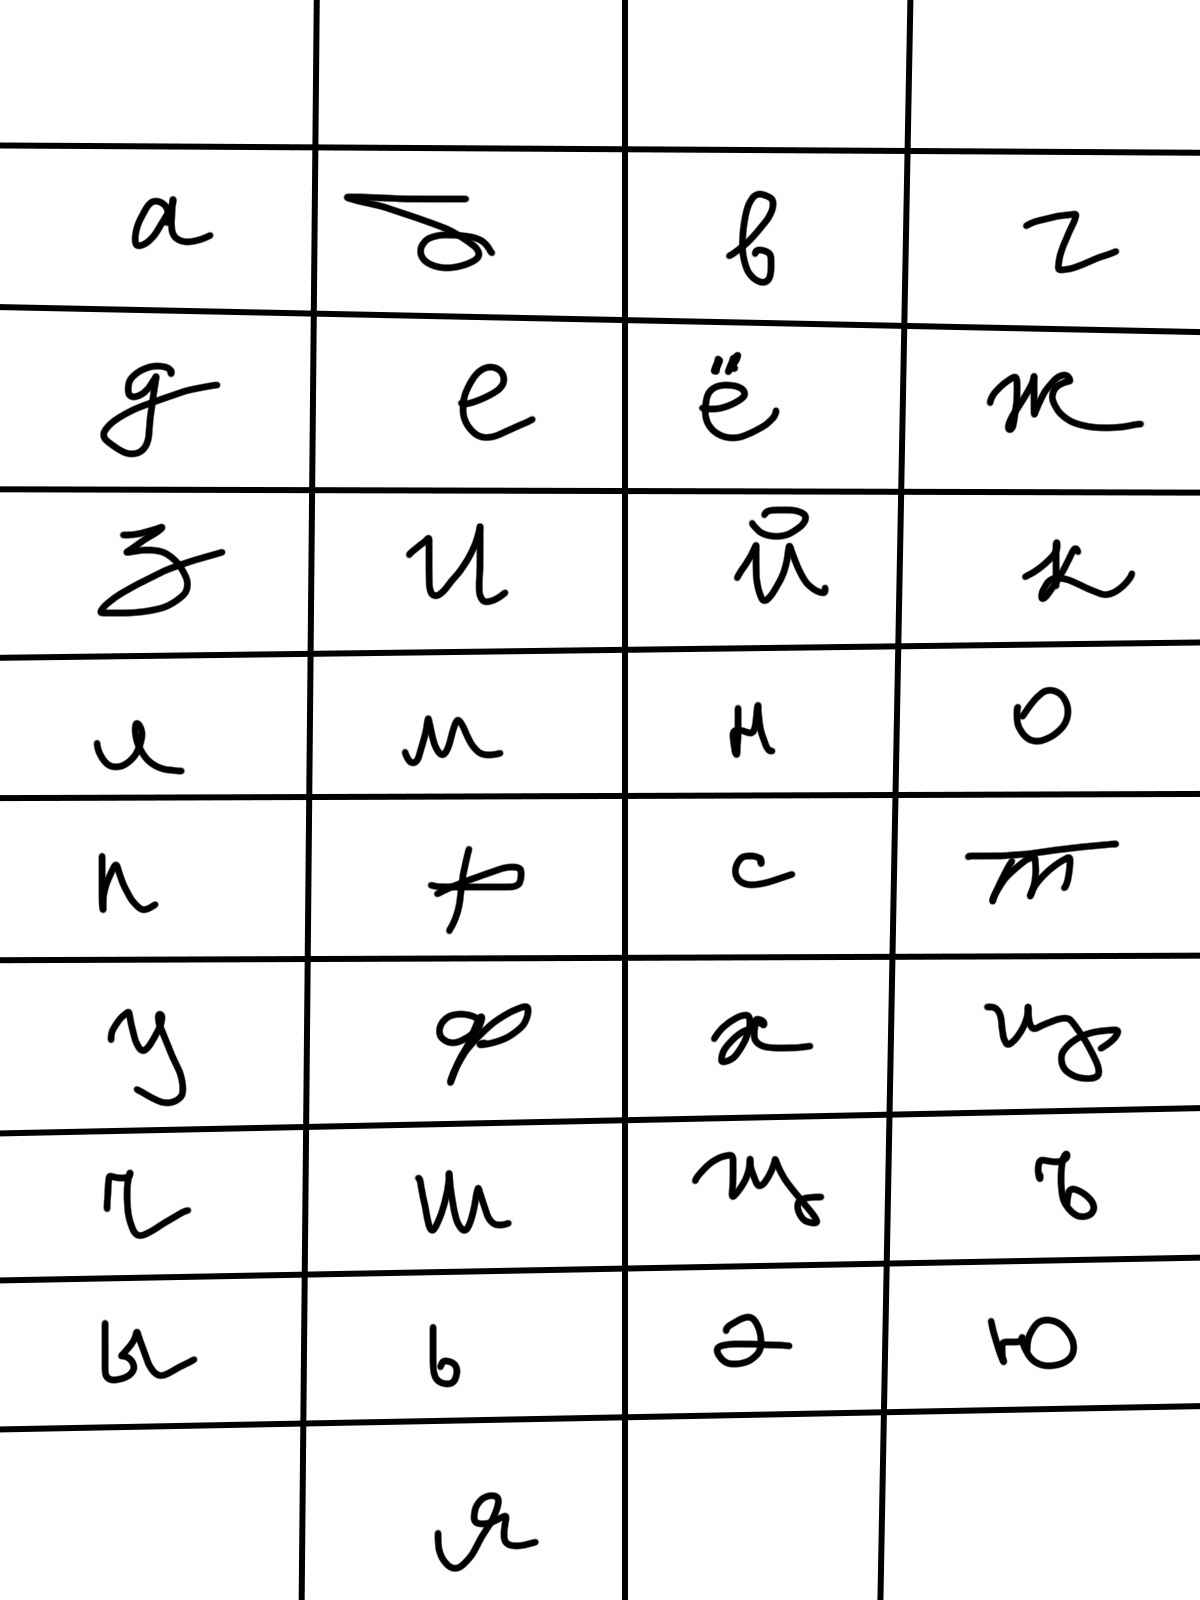 а б в г
д е ё ж
з и й к
л м н о
п р с т
у ф х ц
ч ш щ ъ
ы ь э ю
я